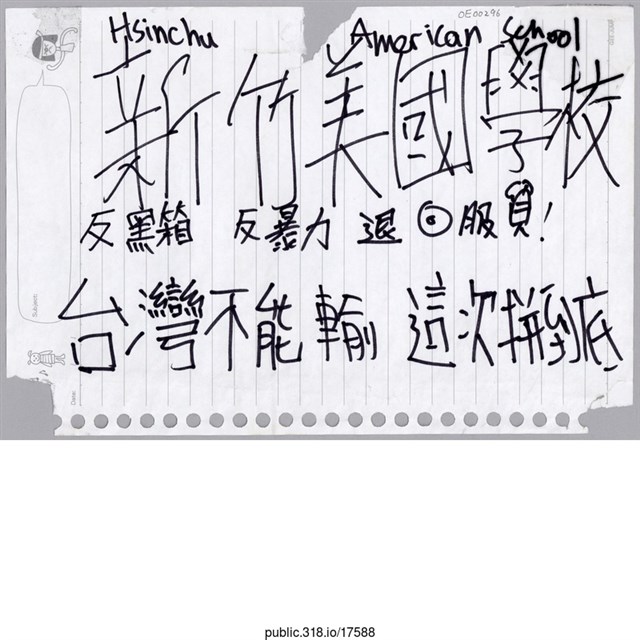 OE00296
Hsinchu American School
新竹美國學校
反黑箱 反暴力 退回服貿!
台灣不能輸 這次拼到底
public.318.io/17588